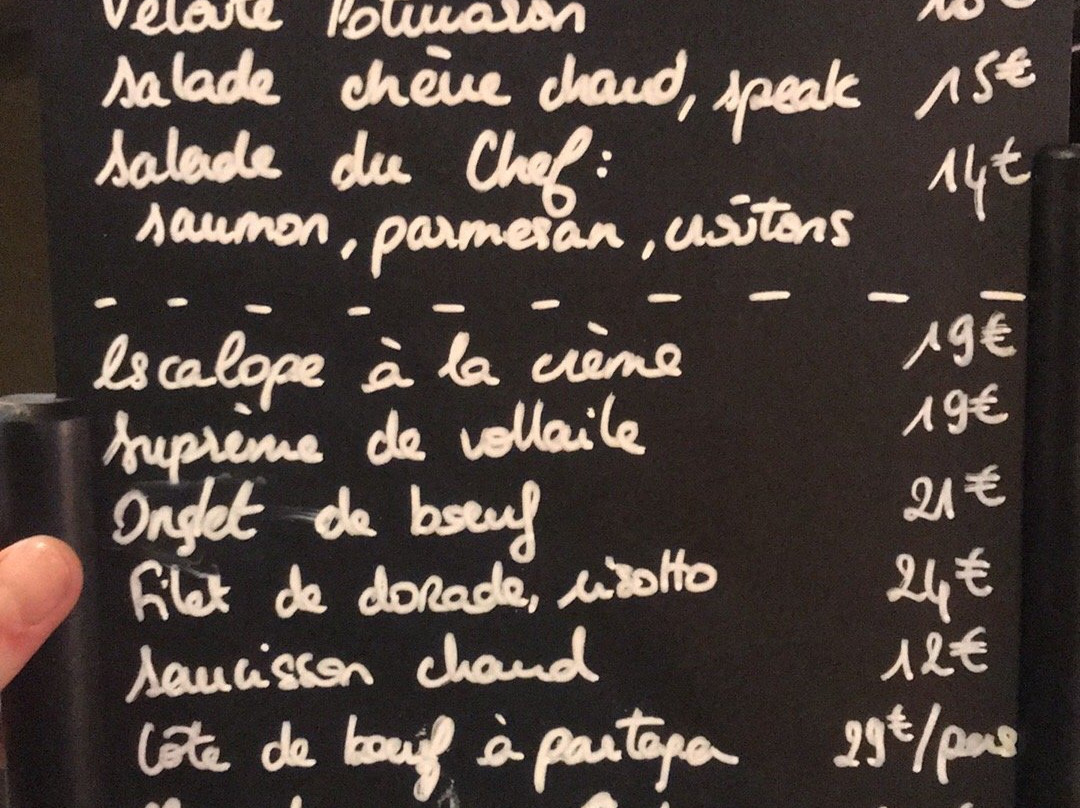 Velouté Potimaron
salade chèvre chaud, speak 15€
salade du Chef: 14€
saumon, parmesan, croûtons
Escalope à la crème 19€
suprème de vollaile 19€
Onglet de boeuf 21€
Filet de dorade, risotto 24€
saucisson chaud 12€
Côte de boeuf à partager 29€/pers